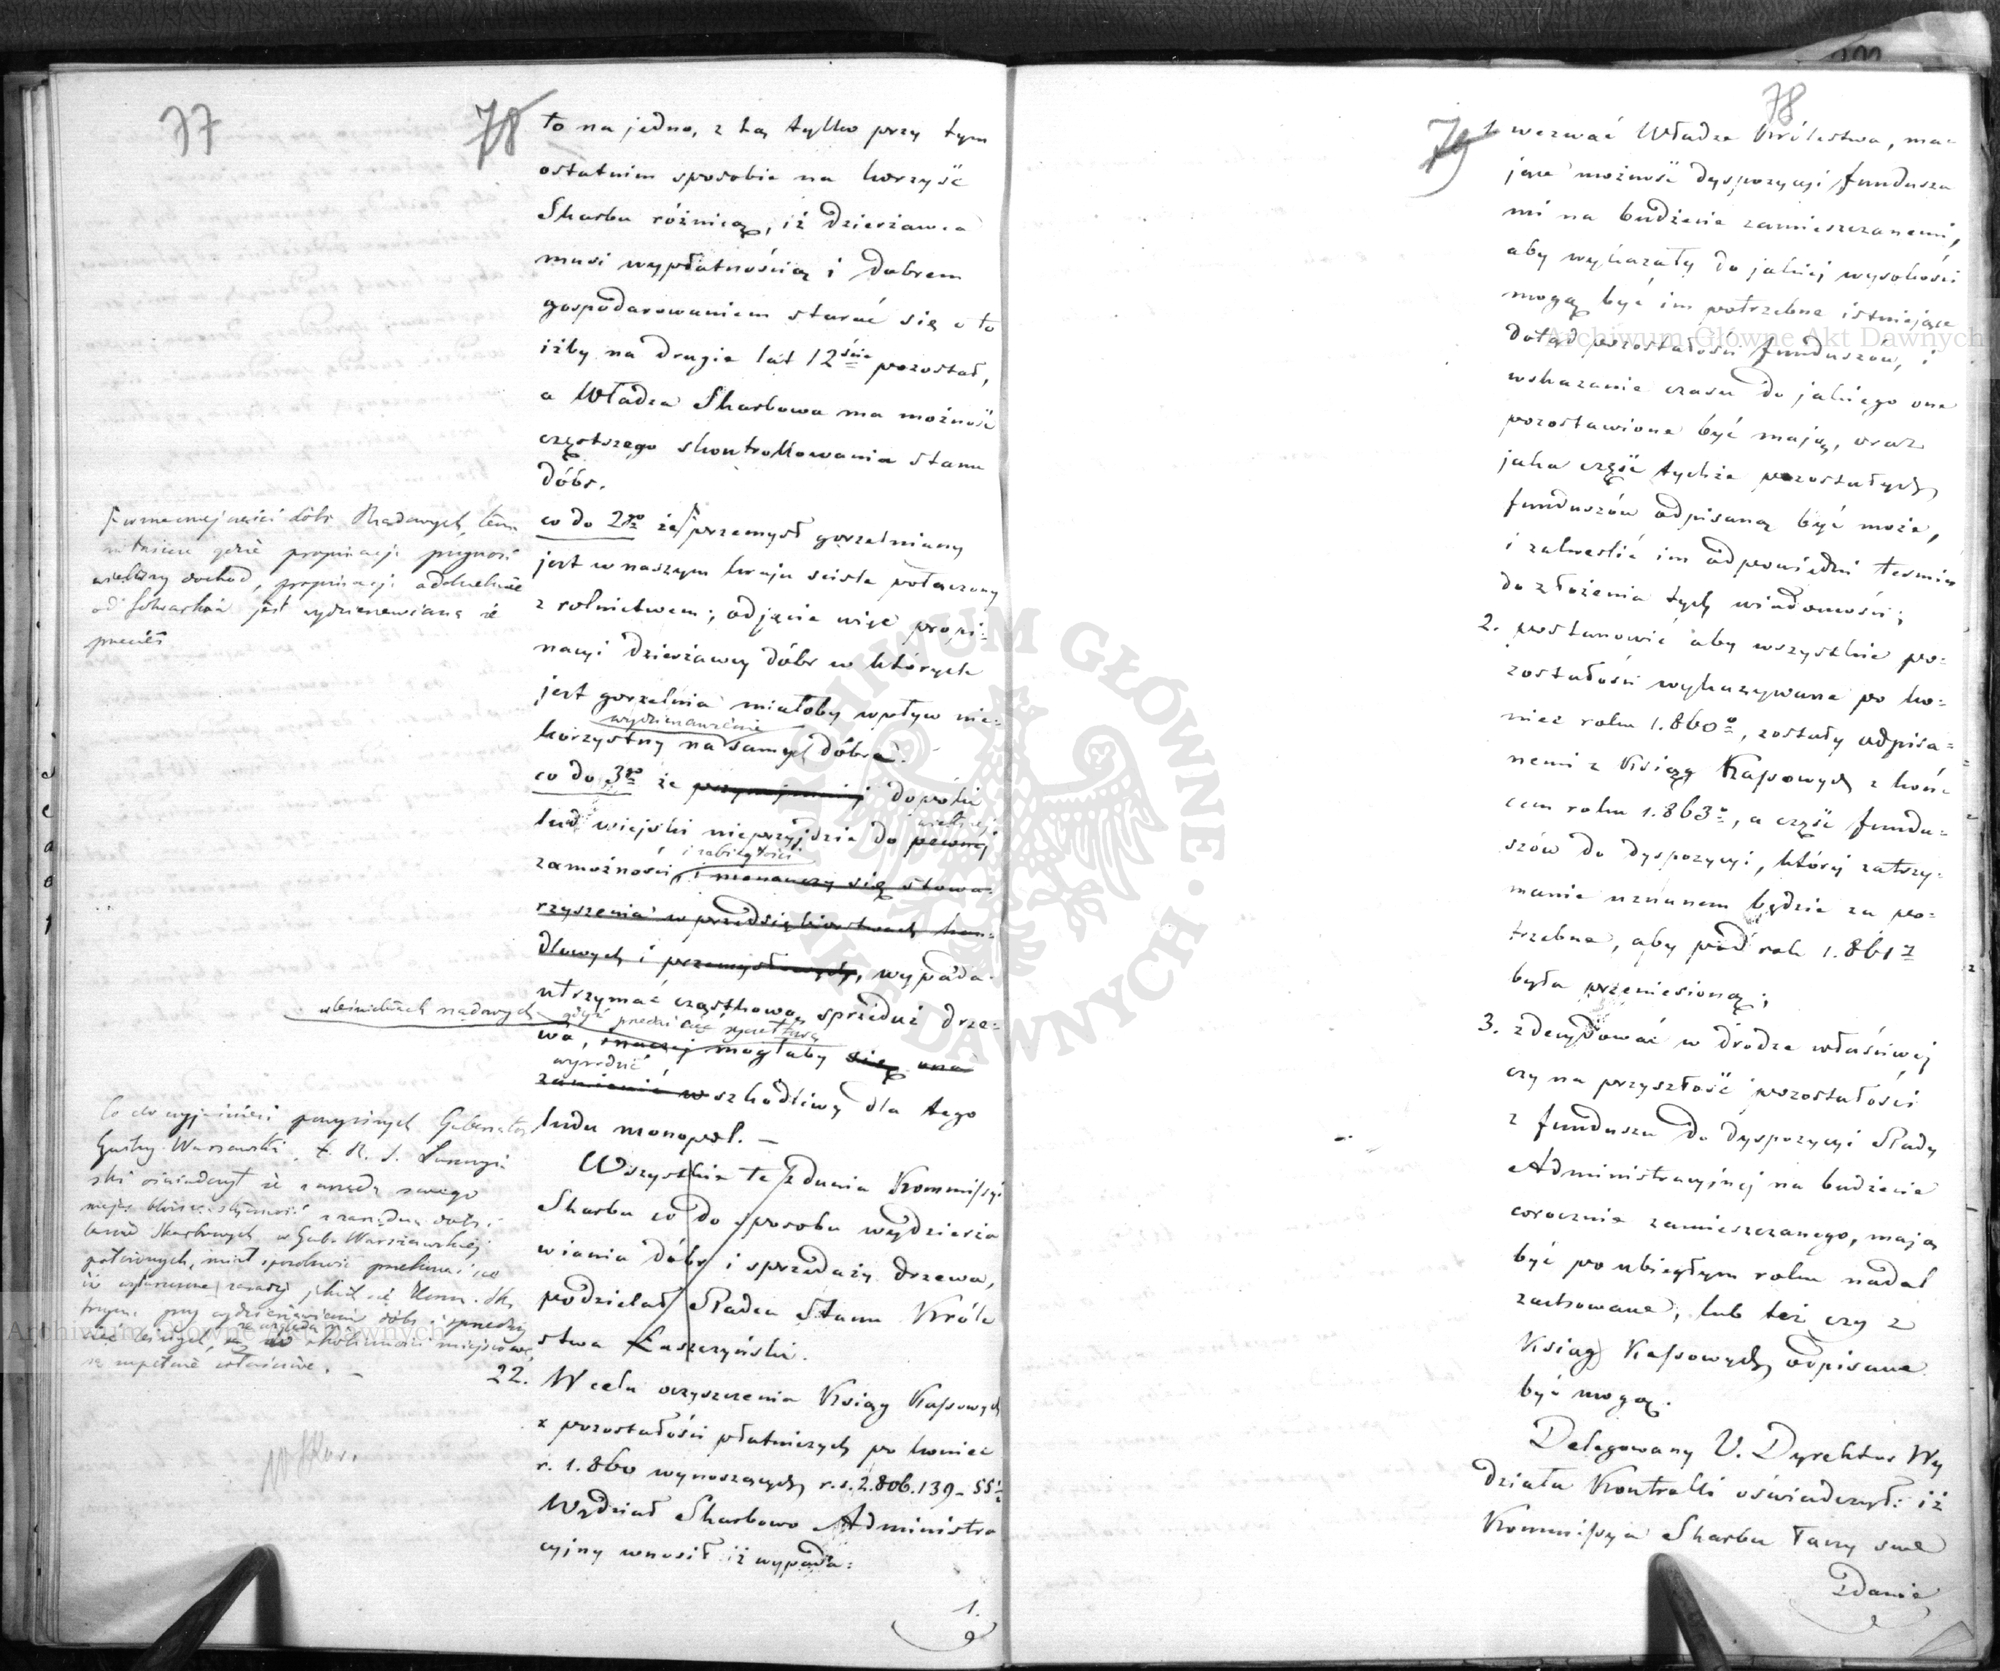 77
78
to na jedno, z tą tylko przy tym
ostatnim sposobie na korzyść
Skarbu różnicą, iż dzierżawca
musi wypłatnością i dobrem
gospodarowaniem starać się o to
iżby na drugie lat 12ście pozostał,
a Władza Skarbowa ma możność
częstszego skontrollowania stanu
dóbr.
co do 2go że przemysł gorzelniany
jest w naszym kraju ściśle połączony
z rolnictwem; odjęcie więc propi-
nacyi dzierżawcy dóbr w których
jest gorzelnia miałoby wpływ nie-
wydzierżawienie
korzystny na samych dóbra.
co do 3go że przynajmniej dopóki
większej
lud wiejski nieprzyjdzie do pewnej
i zabiegłości
zamożności, i nienauczy się stowa-
rzyszenia w przedsiębiorstwach han-
dlowych i przemysłowych, wypada
utrzymać cząstkową sprzedaż drze-
w leśnictwach rządowych gdyż
wa, inaczej mogłaby się ona
wyrodzić
zamienić w szkodliwy dla tego
ludu monopol. —
Wszystkie te zdania Kommissyi
Skarbu co do sposobu wydzierża
wiania dóbr i sprzedaży drzewa,
podzielał Radca Stanu Króle
stwa Łaszczyński.
22. W celu oczyszczenia Ksiąg Kassowych
z pozostałości płatniczych po koniec
r. 1.860 wynoszących r.s. 2.806.139 - 55½
Wydział Skarbowo Administra
cyjny wnosił iż wypada:
1.
w znaczniejszej części dóbr Rządowych,
gdzie propinacja przynosi
większy dochód, propinacja oddzielnie
od folwarków jest wydzierżawianą i że
przecież
Co do wyjaśnień powyższych Gubernator
Cywilny Warszawski, R. R. S.
oświadczył że z urzędu swego
mając bliższą styczność z zarządem dóbr i
lasów Skarbowych w Gub. Warszawskiej
położonych, miał sposobność przekonać się
iż wyłuszczone zasady jakich się Komm. Sk.
trzyma przy wydzierżawianiu dóbr i sprzedaży
ze względu na okoliczności miejscowe
są zupełnie właściwe. —
78
79
1. wezwać Władze Królestwa, ma-
jące możność dyspozycyi fundusza
mi na budżecie zamieszczanemi,
aby wykazały do jakiej wysokości
mogą być im potrzebne istniejące
dotąd pozostałości funduszów, i
wskazanie czasu do jakiego one
pozostawione być mają, oraz
jaka część tychże pozostałych
funduszów odpisaną być może,
i zakreślić im odpowiedni termin
do złożenia tych wiadomości;
2. postanowić aby wszystkie po-
zostałości wykazywane po ko-
niec roku 1.860o, zostały odpisa-
nemi z Ksiąg Kassowych z koń-
cem roku 1.863o, a część fundu-
szów do dyspozycyi, której zatrzy-
manie uznanem będzie za po-
trzebne, aby pod rok 1.861
była przeniesioną;
3. zdecydować w drodze właściwej
czy na przyszłość pozostałości
z funduszu do dyspozycyi Rady
Administracyjnej na budżecie
corocznie zamieszczanego, mają
być po ubiegłym roku nadal
zachowane; lub też czy z
Ksiąg Kassowych odpisane
być mogą.
Delegowany V. Dyrektor Wy
działu Kontrolli oświadczył: iż
Kommissya Skarbu łączy swe
zdanie
Archiwum Główne Akt Dawnych
Archiwum Główne Akt Dawnych
ARCHIWUM GŁÓWNE AKT DAWNYCH